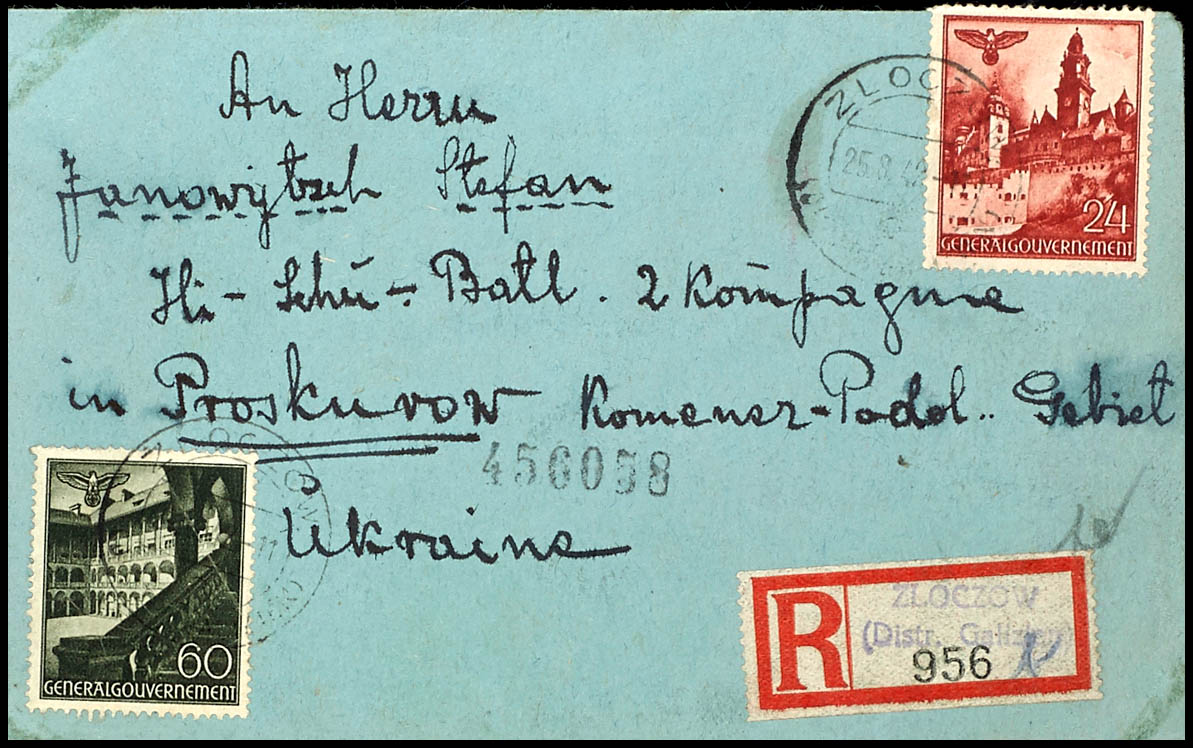 An Herrn
Janowytsch Stefan
Hi - Schu - Batl. 2 Kompagnie
in Proskurow Komenez-Podol.. Gebiet
Ukraine
456058
ZLOCZ
25.8.42
24
GENERALGOUVERNEMENT
ZLOCZOW
60
GENERALGOUVERNEMENT
R
ZLOCZOW
(Distr. Galizien)
956